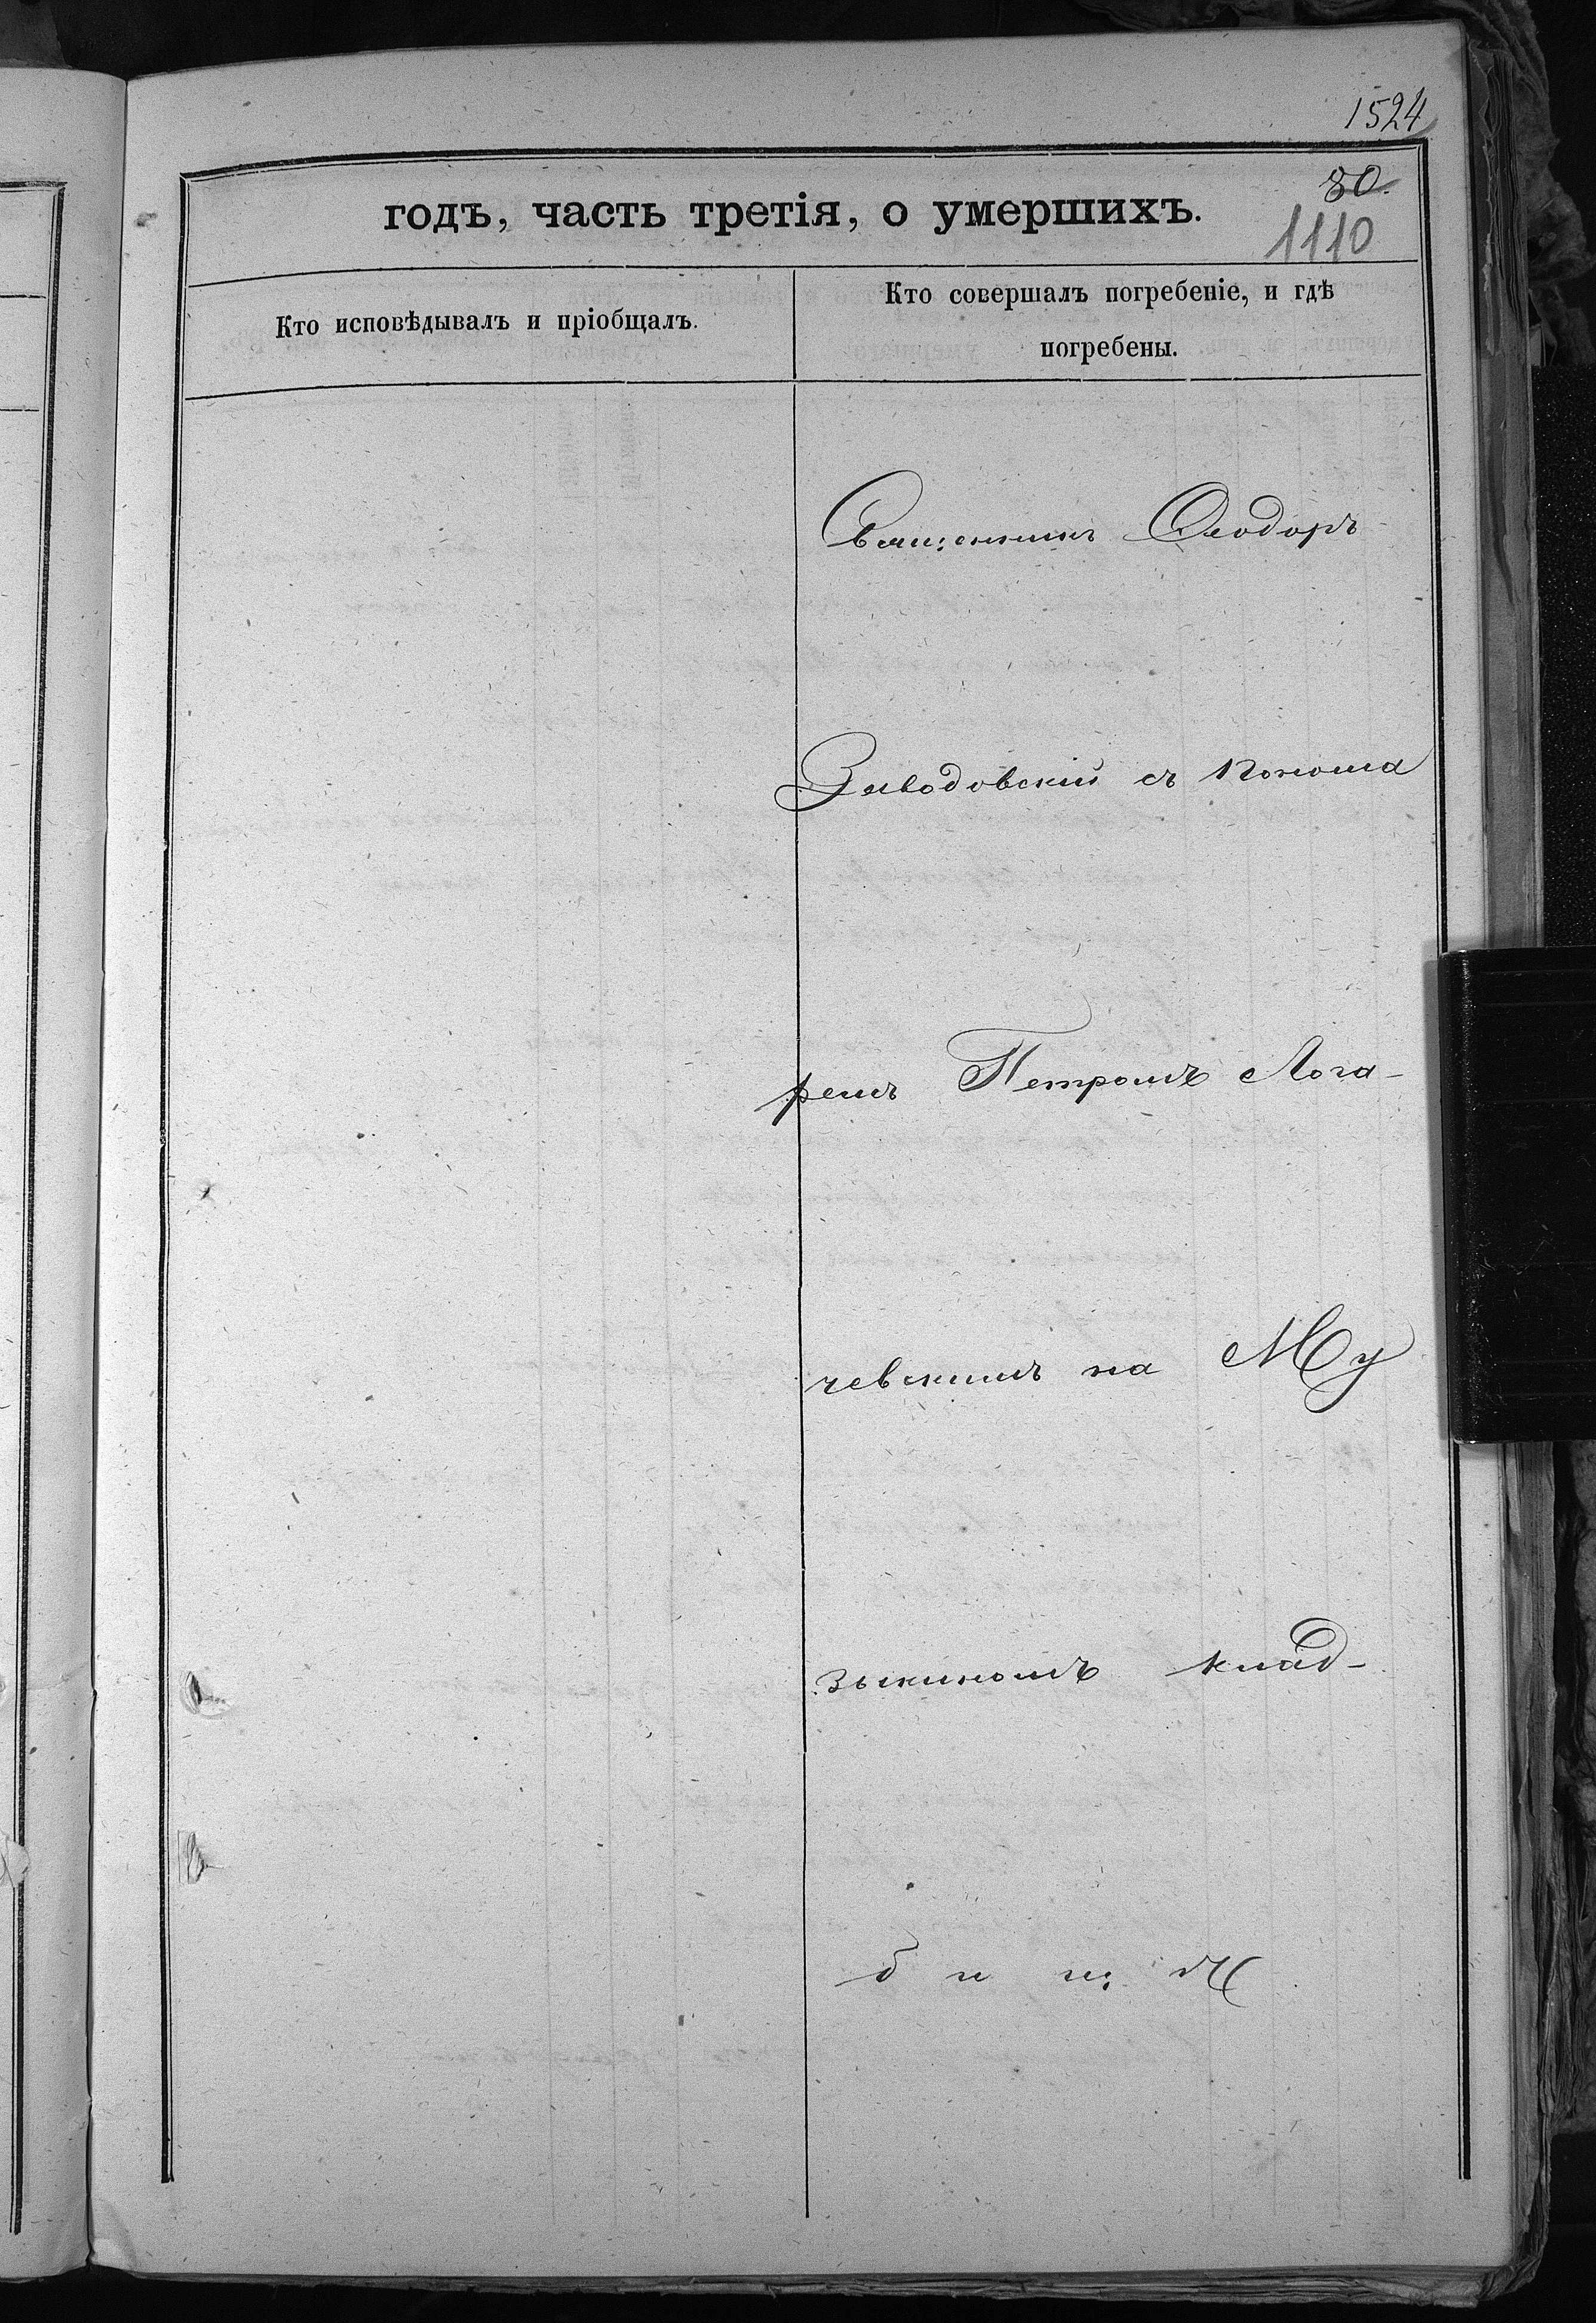 1524
80.
годъ, часть третія, о умершихъ.
1110
Кто исповѣдывалъ и пріобщалъ.
Кто совершалъ погребеніе, и гдѣ
погребены.
Священникъ Ѳеодоръ
Заводовскій съ понома
ремъ Петромъ Лога-
чевскимъ на Му
зыкиномъ клад-
бищѣ